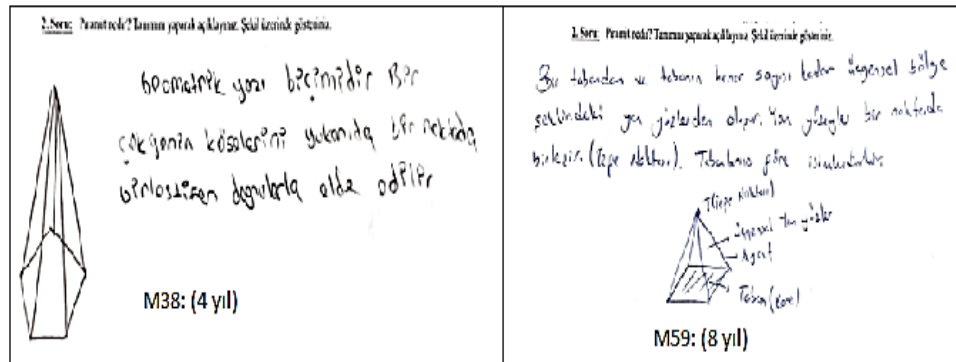 2. Soru: Piramit nedir? Tanımını yaparak açıklayınız. Şekil üzerinde gösteriniz.
Geometrik yapı biçimidir Bir
çokgenin köşelerini yukarıda bir noktada
birleştiren doğrularla elde edilir
M38: (4 yıl)
2. Soru: Piramit nedir? Tanımını yaparak açıklayınız. Şekil üzerinde gösteriniz.
Bir tabandan ve tabanın kenar sayısı kadar üçgensel bölge
şeklindeki yan yüzlerden oluşur. Yan yüzeyler bir noktada
birleşir. (Tepe Noktası). Tabanlarına göre isimlendirilir.
T(Tepe Noktası)
Üçgensel Yan yüzler
Ayrıt
Taban (Kare)
M59: (8 yıl)